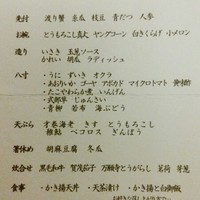 先付　渡り蟹　京瓜　枝豆　青だつ　人参
お椀　とうもろこし真丈　ヤングコーン　白きくらげ　小メロン
造り　いさき　玉葱ソース
かれい　胡瓜　ラディッシュ
八寸　・うに　ずいき　オクラ
・あおりいか　ゴーヤ　アボカド　マイクロトマト　黄身酢
・たこやわらか煮　いんげん
・式部草　じゅんさい
・青柳　若布　海ぶどう
天ぷら　才巻海老　きす　とうもろこし
稚鮎　ペコロス　ぎんぽう
箸休め　胡麻豆腐　冬瓜
炊合せ　黒毛和牛　賀茂茄子　万願寺とうがらし　茗荷　芽葱
食事　・かき揚天丼　・天茶漬け　・かき揚と白御飯